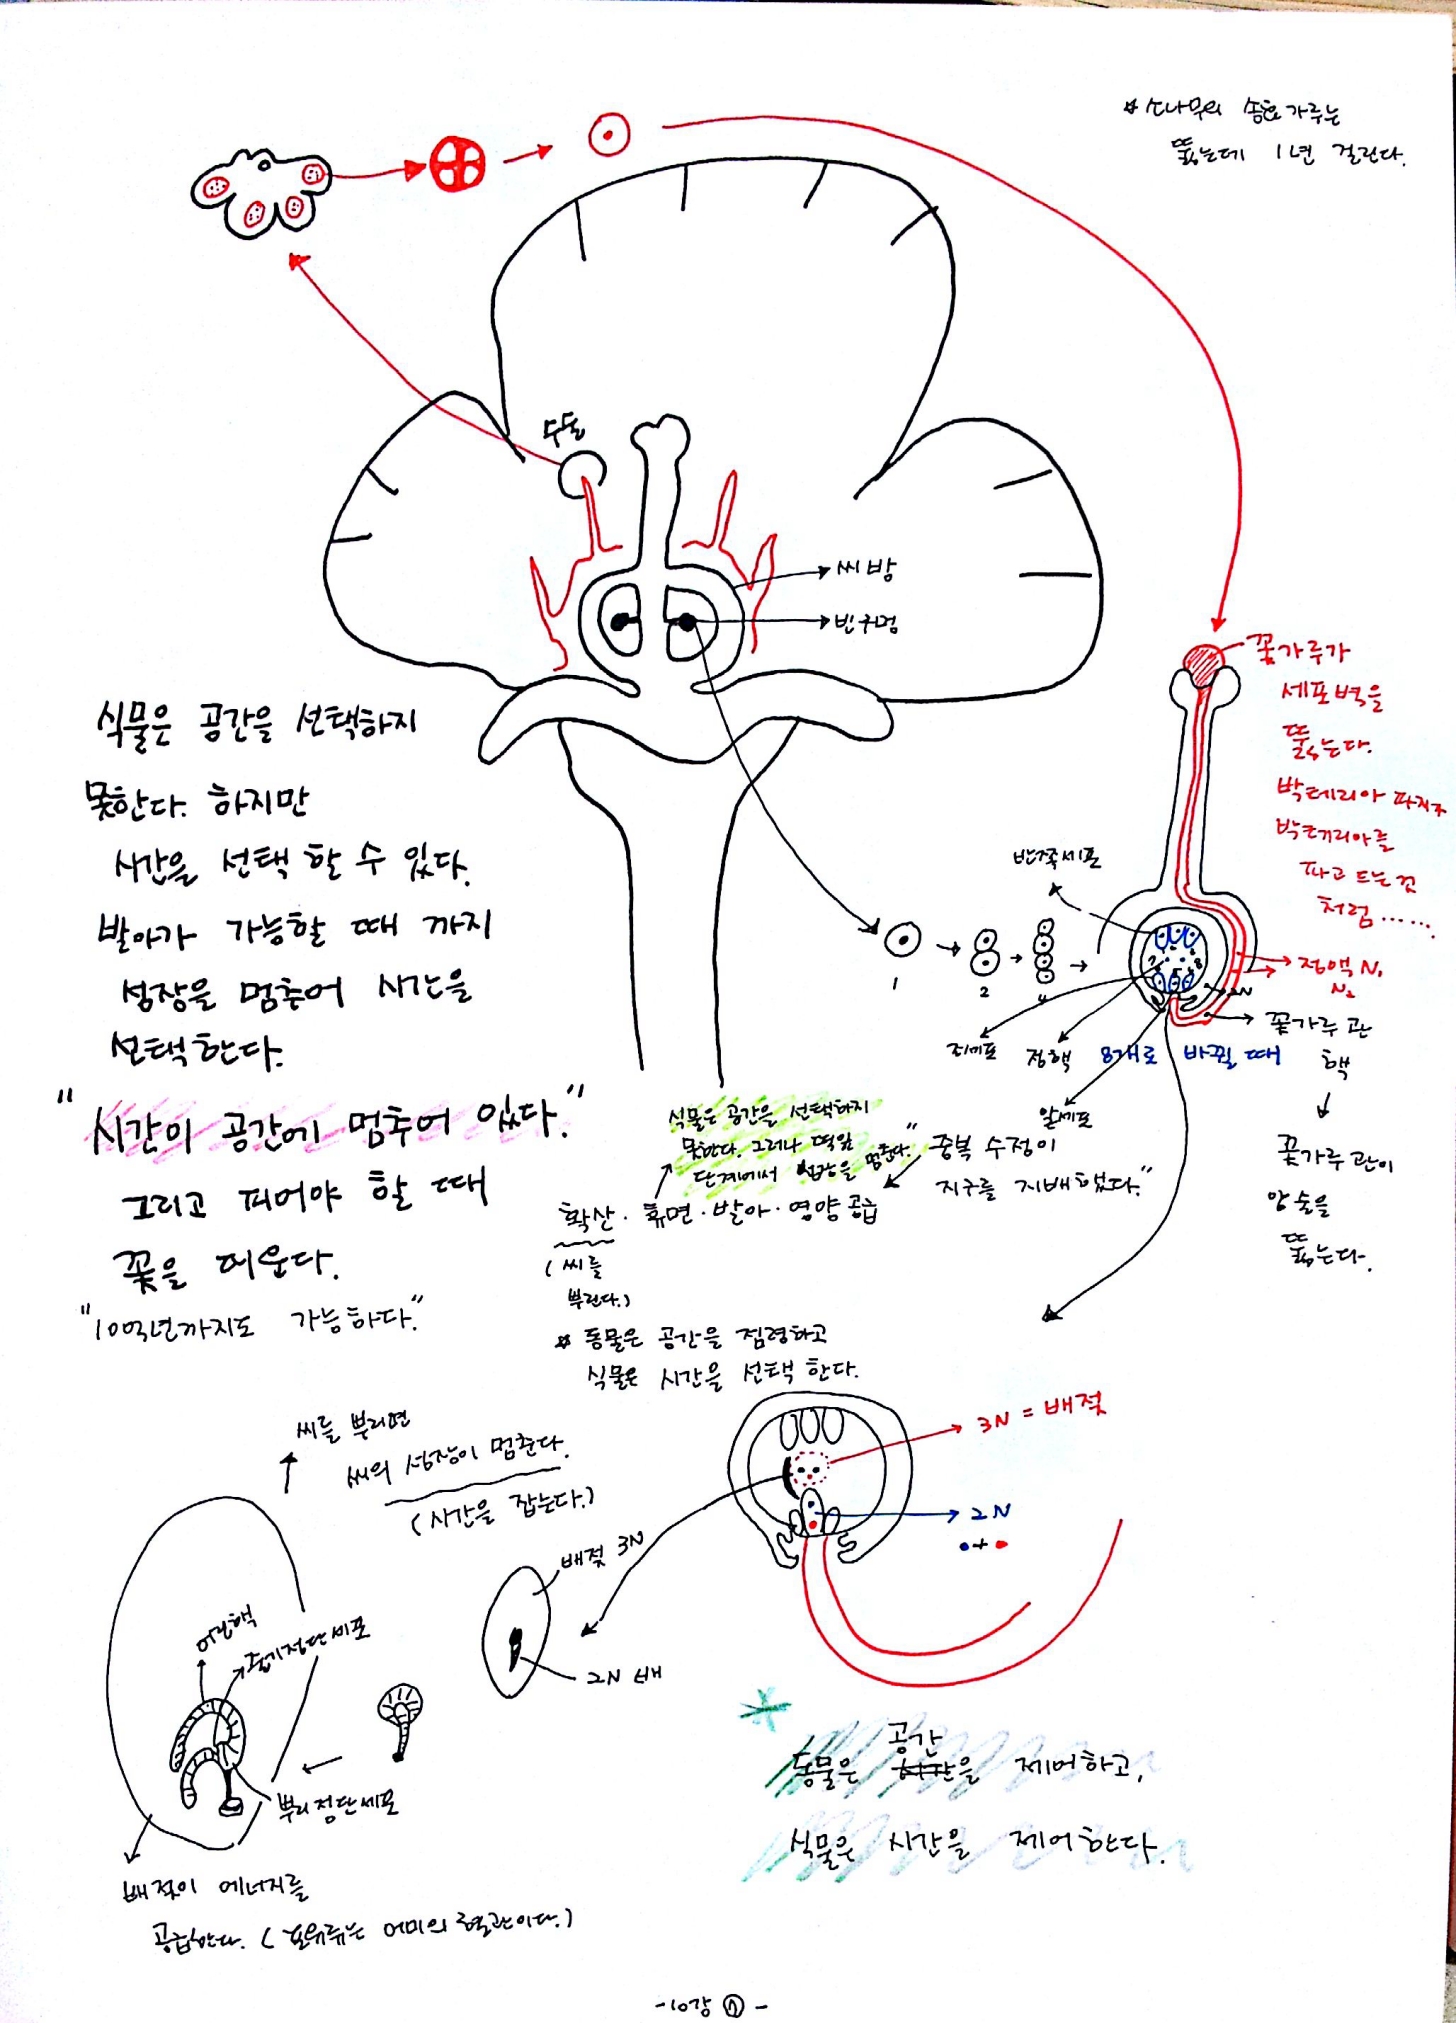 * 소나무의 송화가루는
뚫는데 1년 걸린다.
수술
씨방
빈구멍
식물은 공간을 선택하지
못한다. 하지만
시간을 선택 할 수 있다.
발아가 가능할 때 까지
성장을 멈추어 시간을
선택한다.
"시간이 공간에 멈추어 있다."
그리고 피어야 할 때
꽃을 피운다.
"10억년까지도 가능하다."
꽃가루가
세포벽을
뚫는다.
박테리아
박테리아를
파고 드는 것
처럼 ......
정핵 N₁
N₂
꽃가루 관
핵
↓
꽃가루 관이
암술을
뚫는다.
반족세포
1
2
4
N
조세포
정핵
8개로 바뀔 때
알세포
식물은 공간을 선택하지
못한다. 그러나
단계에서 멈춘다."
중복 수정이
지구를 지배했다."
확산 · 휴면 · 발아 · 영양 공급
(씨를
뿌린다.)
* 동물은 공간을 점령하고
식물은 시간을 선택 한다.
씨를 뿌리면
씨의 성장이 멈춘다.
(시간을 잡는다.)
3N = 배젖
2N
+
배젖 3N
2N 배
어린핵
줄기정단세포
뿌리정단세포
배젖이 에너지를
공급한다. (포유류는 어미의 혈관이다.)
* 동물은 공간을 제어하고,
식물은 시간을 제어한다.
-10강 ⑦-